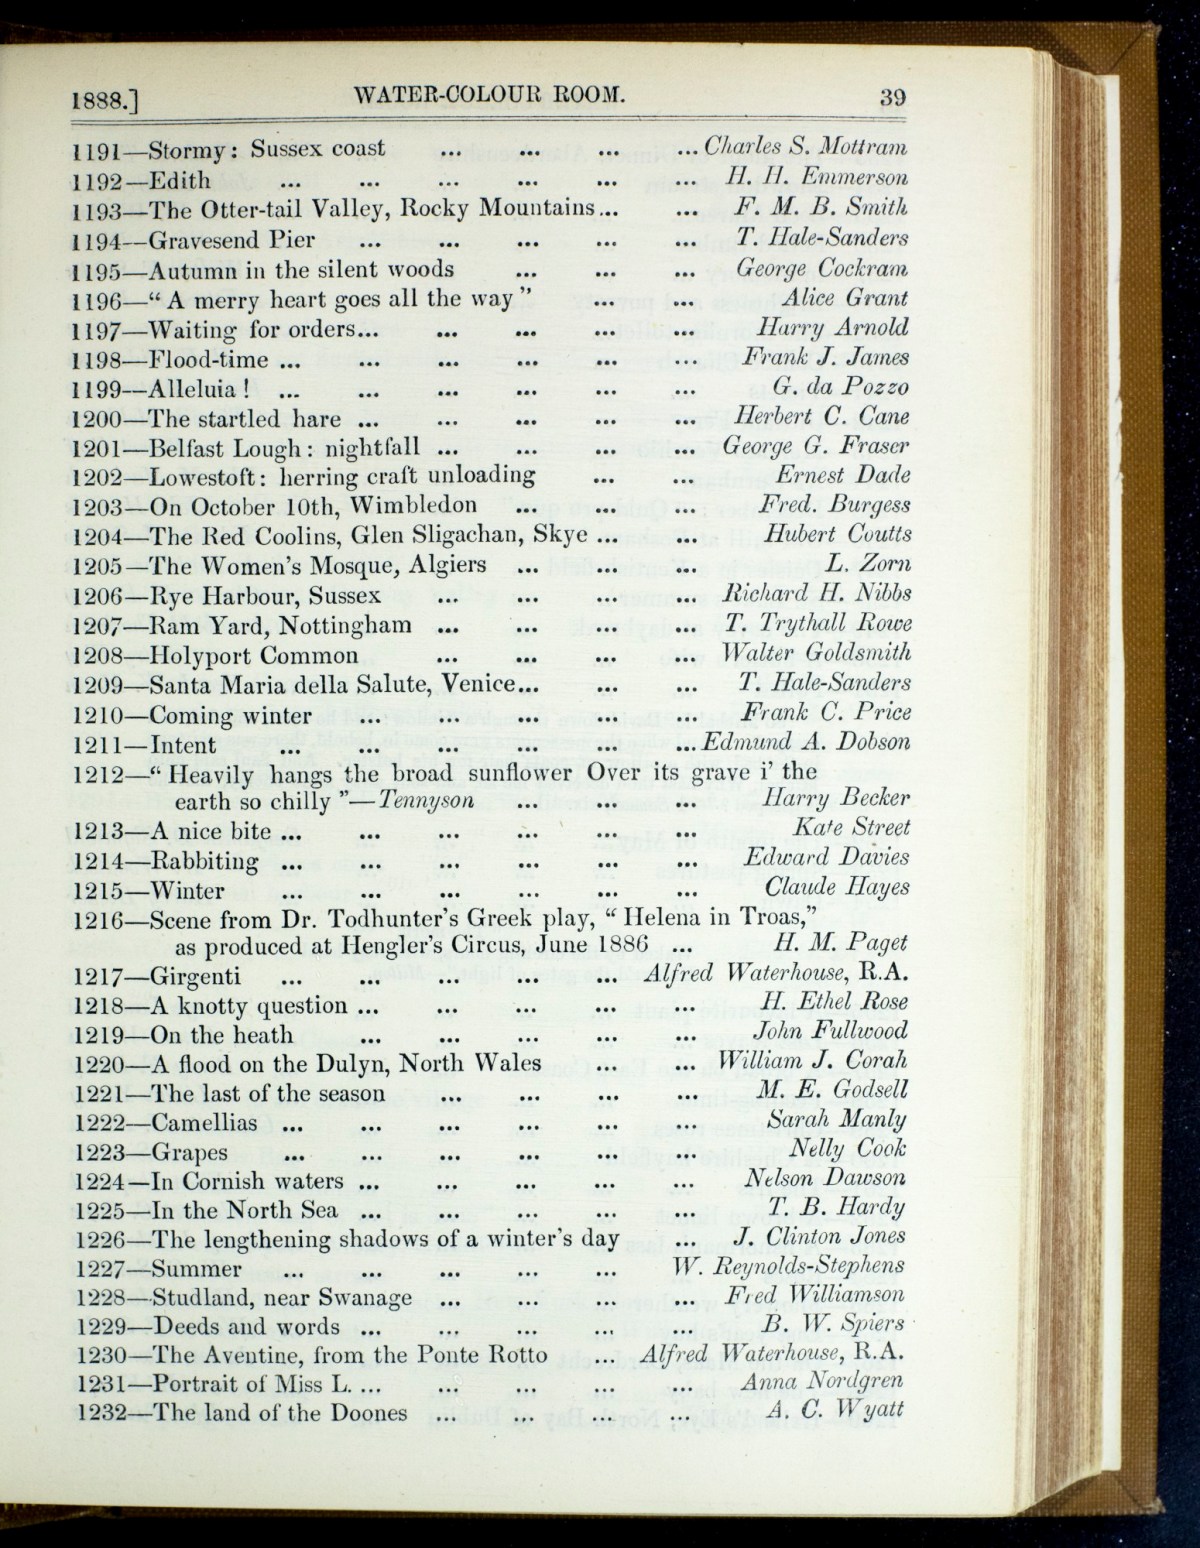 1888.] WATER-COLOUR ROOM. 39
1191—Stormy: Sussex coast ... ... ... ... Charles S. Mottram
1192—Edith ... ... ... ... ... ... H. H. Emmerson
1193—The Otter-tail Valley, Rocky Mountains... ... F. M. B. Smith
1194—Gravesend Pier ... ... ... ... ... T. Hale-Sanders
1195—Autumn in the silent woods ... ... ... George Cockram
1196—“A merry heart goes all the way” ... ... Alice Grant
1197—Waiting for orders... ... ... ... ... Harry Arnold
1198—Flood-time ... ... ... ... ... ... Frank J. James
1199—Alleluia! ... ... ... ... ... ... G. da Pozzo
1200—The startled hare ... ... ... ... ... Herbert C. Cane
1201—Belfast Lough: nightfall ... ... ... ... George G. Fraser
1202—Lowestoft: herring craft unloading ... ... Ernest Dade
1203—On October 10th, Wimbledon ... ... ... Fred. Burgess
1204—The Red Coolins, Glen Sligachan, Skye ... ... Hubert Coutts
1205—The Women's Mosque, Algiers ... ... ... L. Zorn
1206—Rye Harbour, Sussex ... ... ... ... Richard H. Nibbs
1207—Ram Yard, Nottingham ... ... ... ... T. Trythall Rowe
1208—Holyport Common ... ... ... ... Walter Goldsmith
1209—Santa Maria della Salute, Venice... ... ... T. Hale-Sanders
1210—Coming winter ... ... ... ... ... Frank C. Price
1211—Intent ... ... ... ... ... ... Edmund A. Dobson
1212—“Heavily hangs the broad sunflower Over its grave i' the
earth so chilly”—Tennyson ... ... ... Harry Becker
1213—A nice bite ... ... ... ... ... ... Kate Street
1214—Rabbiting ... ... ... ... ... ... Edward Davies
1215—Winter ... ... ... ... ... ... Claude Hayes
1216—Scene from Dr. Todhunter's Greek play, “Helena in Troas,”
as produced at Hengler's Circus, June 1886 ... H. M. Paget
1217—Girgenti ... ... ... ... ... Alfred Waterhouse, R.A.
1218—A knotty question ... ... ... ... ... H. Ethel Rose
1219—On the heath ... ... ... ... ... John Fullwood
1220—A flood on the Dulyn, North Wales ... ... William J. Corah
1221—The last of the season ... ... ... ... M. E. Godsell
1222—Camellias ... ... ... ... ... ... Sarah Manly
1223—Grapes ... ... ... ... ... ... Nelly Cook
1224—In Cornish waters ... ... ... ... ... Nelson Dawson
1225—In the North Sea ... ... ... ... ... T. B. Hardy
1226—The lengthening shadows of a winter's day ... J. Clinton Jones
1227—Summer ... ... ... ... ... W. Reynolds-Stephens
1228—Studland, near Swanage ... ... ... Fred Williamson
1229—Deeds and words ... ... ... ... ... B. W. Spiers
1230—The Aventine, from the Ponte Rotto ... Alfred Waterhouse, R.A.
1231—Portrait of Miss L. ... ... ... ... ... Anna Nordgren
1232—The land of the Doones ... ... ... ... A. C. Wyatt